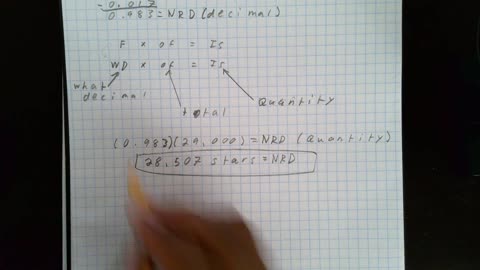 0.017
0.983 = NRD (decimal)
F × of = Is
WD × of = Is
what decimal
total
Quantity
(0.983)(29,000) = NRD (Quantity)
28,507 stars = NRD